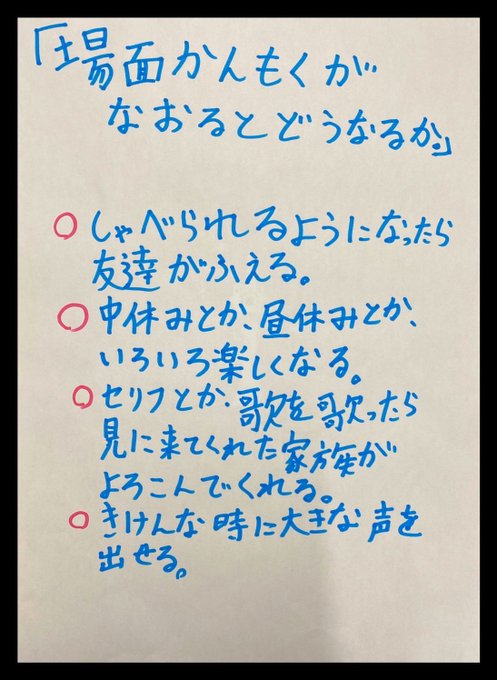 「場面かんもくが
なおるとどうなるか」
○ しゃべられるようになったら
友達がふえる。
○ 中休みとか、昼休みとか、
いろいろ楽しくなる。
○ セリフとか、歌を歌ったら
見に来てくれた家族が
よろこんでくれる。
○ きけんな時に大きな声を
出せる。